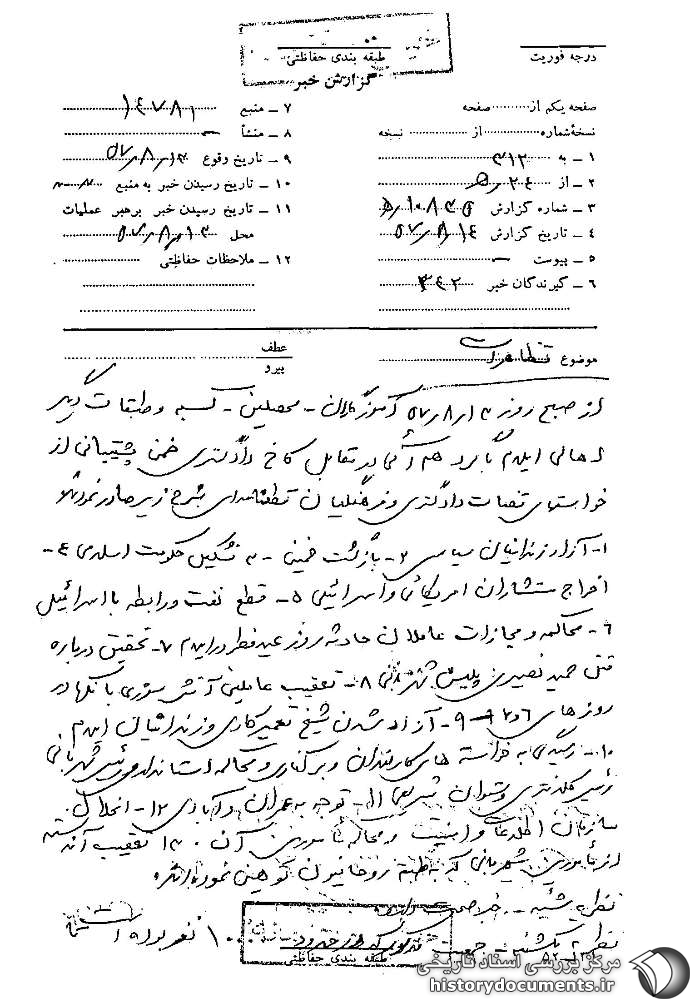 طبقه بندی حفاظتی
گزارش خبر
درجه فوریت
صفحه یکم از صفحه
نسخه شماره از نسخه
۱ – به ۳۱۲
۲ – از ۲۴ ه
۳ – شماره گزارش
۴ – تاریخ گزارش ۵۷/۸/۱۴
۵ – پیوست –
۶ – گیرندگان خبر ۳۴۲
۷ – منبع ۱۴۷۸۱
۸ – منشأ –
۹ – تاریخ وقوع ۵۷/۸/۱۳
۱۰ – تاریخ رسیدن خبر به منبع
۱۱ – تاریخ رسیدن خبر برهبر عملیات
محل ۵۷/۸/۱۳
۱۲ – ملاحظات حفاظتی
موضوع تظاهرات
عطف
پیرو
از صبح روز ۵۷/۸/۱۳ آموزگاران – محصلین – کسبه و طبقات دیگر
اهالی ایلام با گرد هم آئی در مقابل کاخ دادگستری ضمن پشتیبانی از
خواستهای قضات دادگستری و فرهنگیان قطعنامه‌ای بشرح زیر صادر نمودند
۱– آزاد زندانیان سیاسی ۲– بازگشت خمینی – ۳ تشکیل حکومت اسلامی ۴–
اخراج مستشاران امریکائی و اسرائیلی ۵– قطع نفت و رابطه با اسرائیل
۶– محاکمه و مجازات عاملان حادثه روز عید فطر در ایلام ۷– تحقیق درباره
قتل نصیری پلیس شهربانی ۸– تعقیب عاملین آتش سوزی بانکها در
روزهای ۹– آزاد شدن شیخ تعمیرکاری و زندانیان ایلام
۱۰– رسیدگی به خواسته های کارمندان و برکناری و محاکمه استاندار و رئیس شهربانی
رئیس کلانتری و ستوان شریفی ۱۱– توجه به عمران و آبادی ۱۲– انحلال
سازمان اطلاعات و امنیت و محاکمه مامورین آن ۰ ۱۳ تعقیب آندسته
از مأمورین شهربانی که به طبقه روحانیون توهین نموده‌اند
نظریه شنبه – خبر صحت دارد
نظریه یکشنبه – جمعیت در حدود ۱۰۰۰ نفر بوده است
طبقه بندی حفاظتی
مرکز بررسی اسناد تاریخی
historydocuments.ir